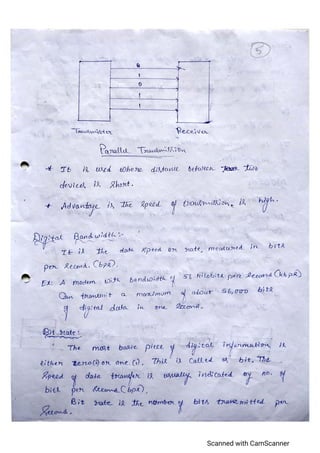 5
0
1
0
1
1
Transmitter Receiver
Parallel Transmission
+ It is used where distance between two
devices is Short.
+ Advantage is the speed of transmission is high.
Digital Bandwidth:-
It is the data speed or rate, measured in bits
per second. (bps).
Ex: A modem with bandwidth of 57 kilobits per second (kbps)
Can transmit a maximum of about 56,000 bits
of digital data in one second.
Bit rate:
The most basic piece of digital information is
either zero(0) or one.(1). This is Called a bit. The
speed of data transfer is usually indicated by no. of
bits per second (bps).
Bit rate is the number of bits transmitted per
second.
Scanned with CamScanner